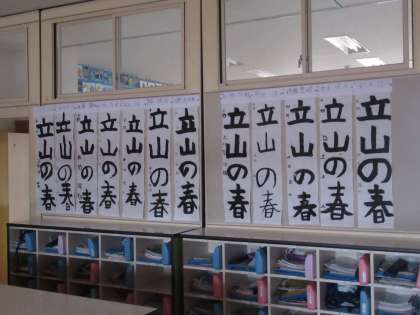 立山の春
立山の春
立山の春
立山の春
立山の春
立山の春
立山の春
立山の春
立山の春
立山の春
立山の春
立山の春